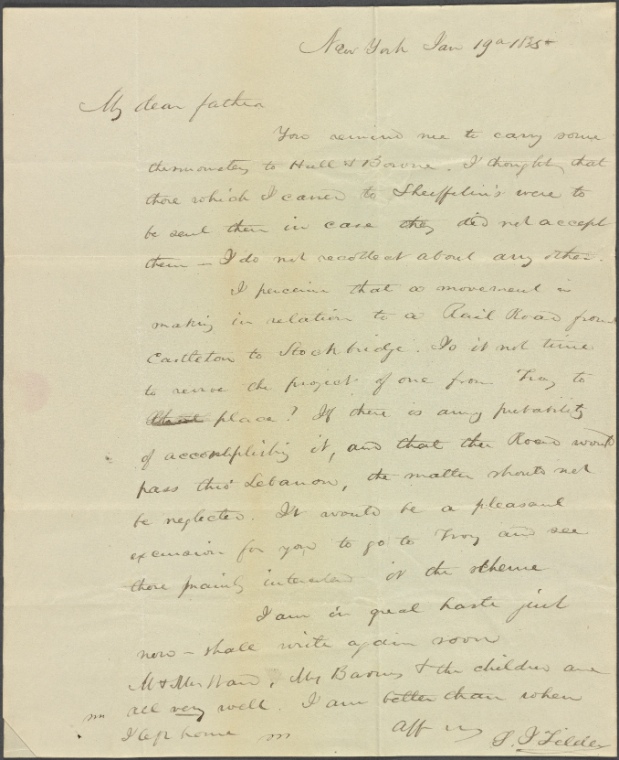 New York Jan 19 1835
My dear father
You remind me to carry some
thermometers to Hull & Bowne. I thought that
those which I carried to Sheiffelin's were to
be sent them in case they did not accept
them — I do not recollect about any other.
I perceive that a movement is
making in relation to a Rail Road from
Castleton to Stockbridge. Is it not time
to revive the project of one from Troy to
place? If there is any probability
of accomplishing it, and that the Road would
pass thro' Lebanon, the matter should not
be neglected. It would be a pleasant
excursion for you to go to Troy and see
those mainly interested in the scheme
I am in great haste just
now — shall write again soon
Mr & Mrs Ward, & the children are
all very well. I am better than when
I left home
Aff
S. J Tilden